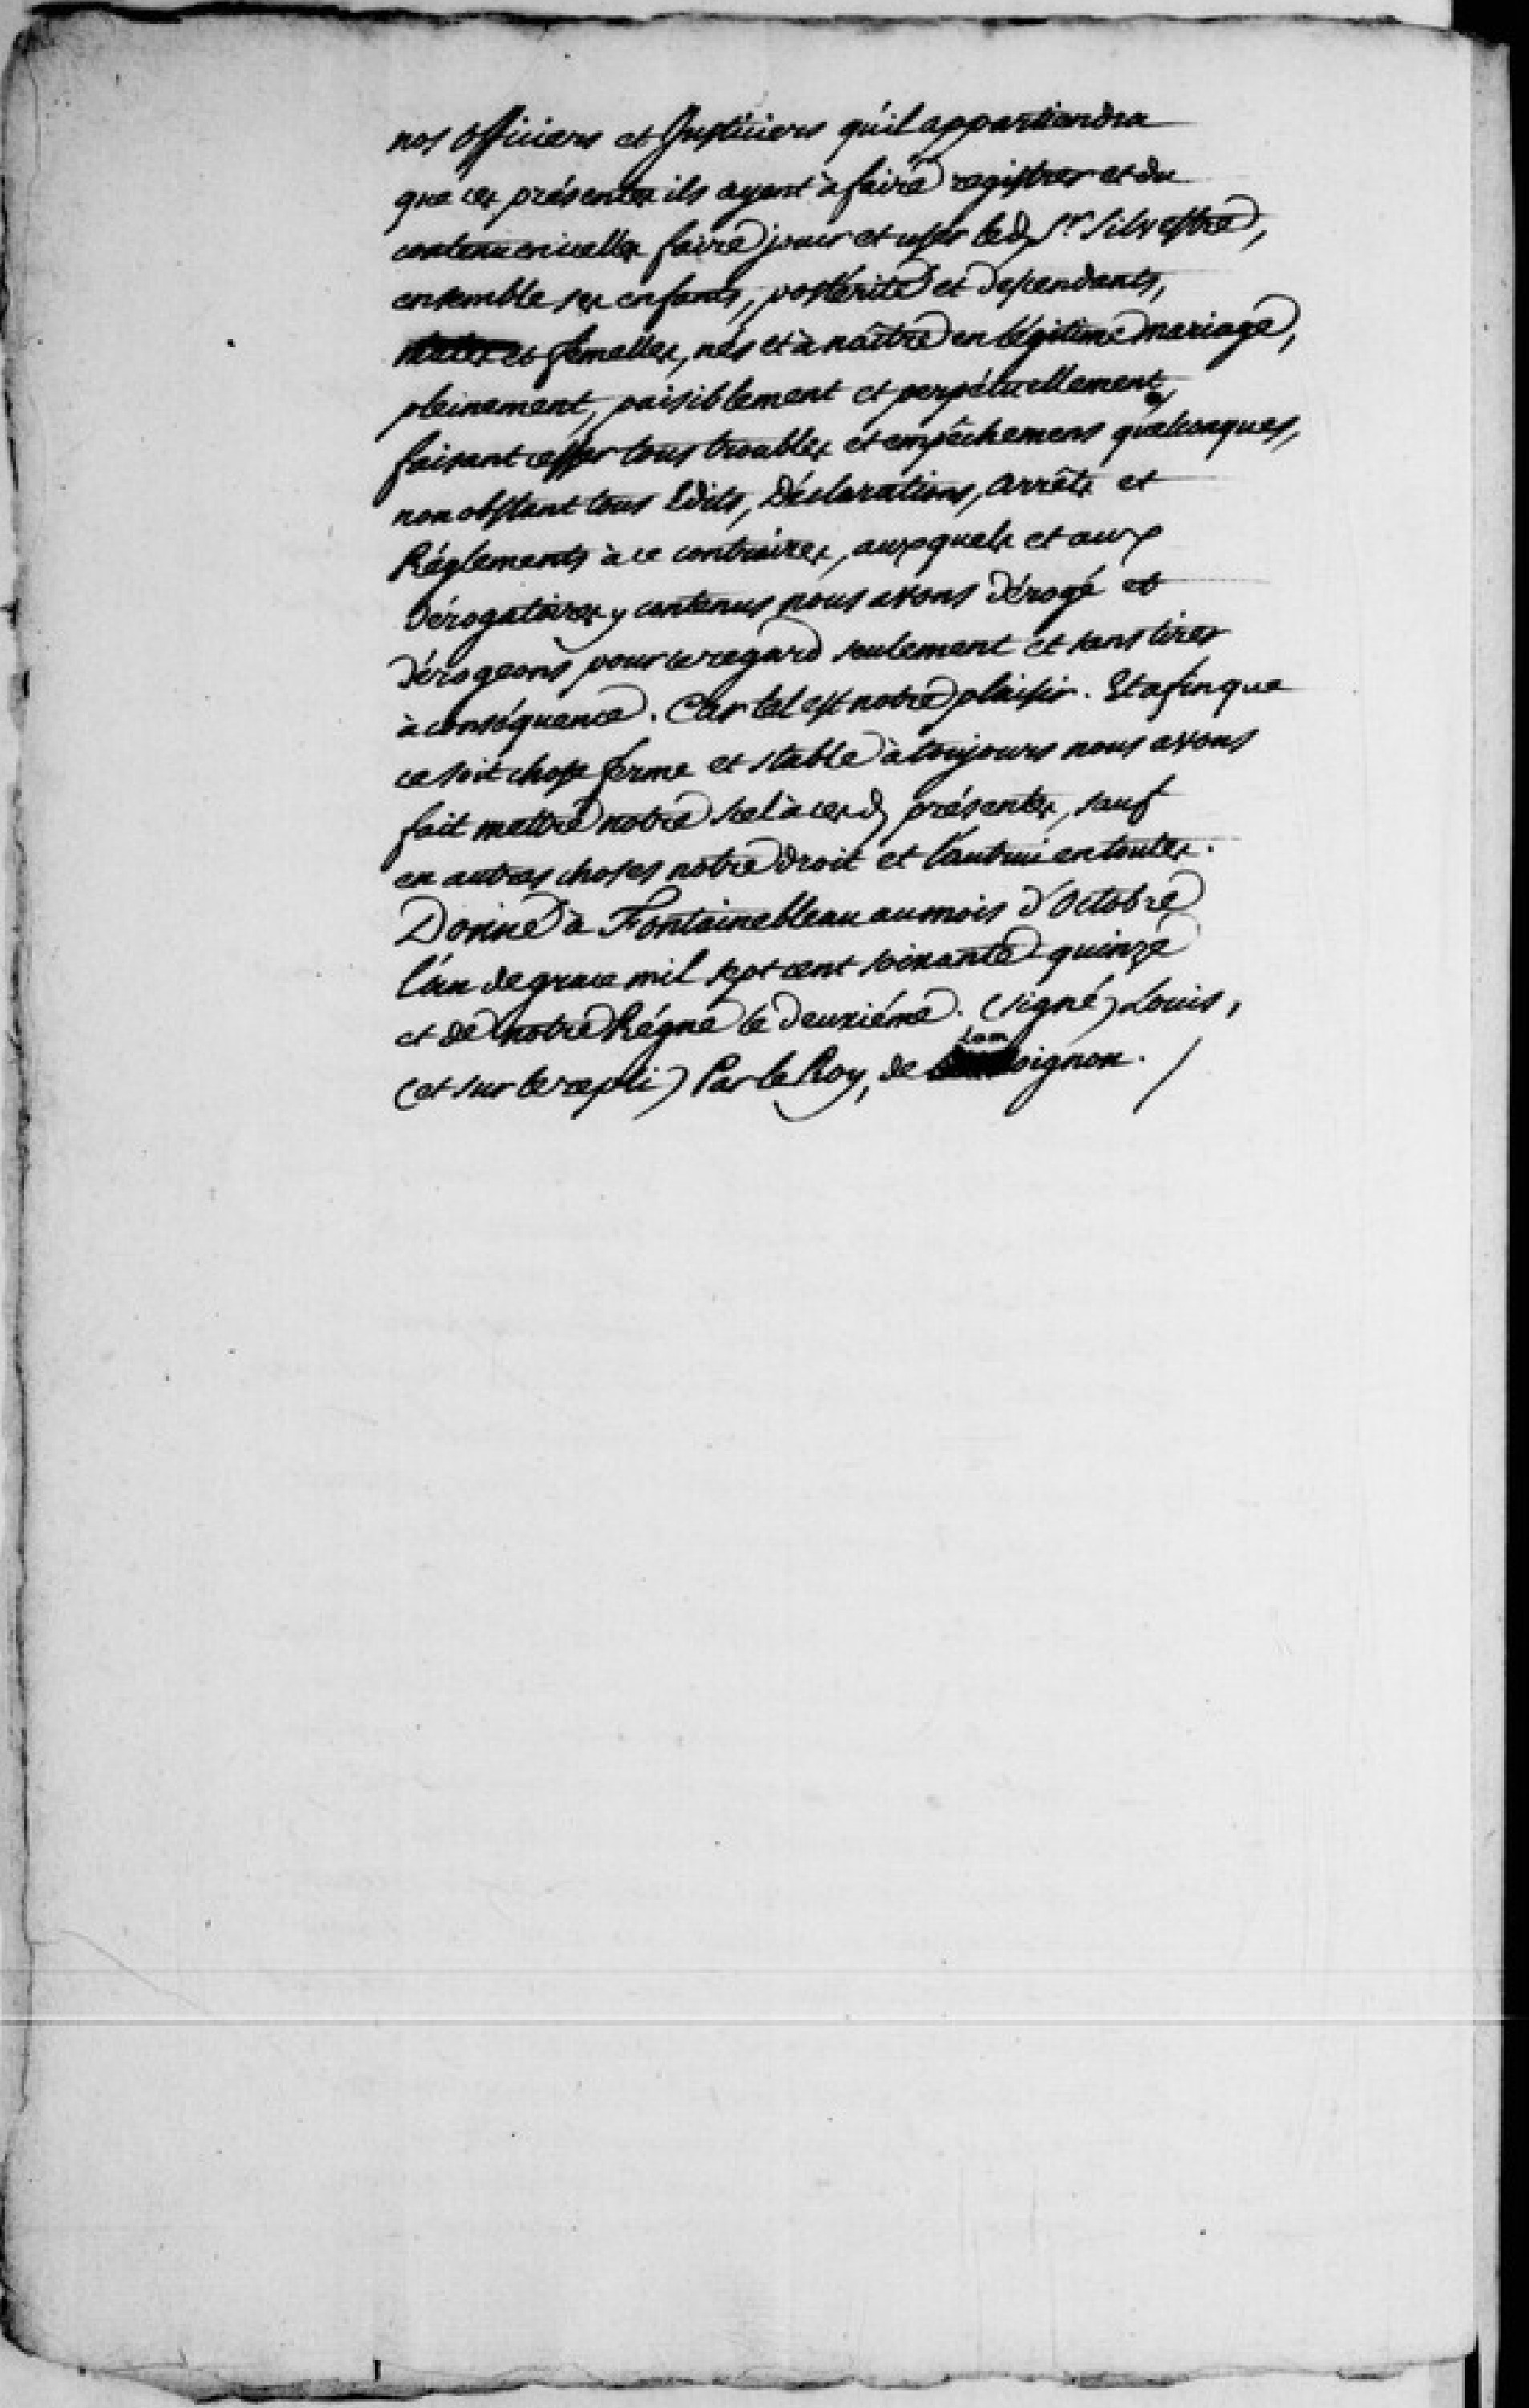 nos Officiers et Justiciers qu'il appartiendra
que ces présentes ils ayent à faire registrer et du
contenu en icelles faire jouir et user led. Sr. Silvestre,
ensemble ses enfants, postérité et descendants,
mâles et femelles, nés et à naître en légitime mariage,
pleinement, paisiblement et perpétuellement,
faisant cesser tous troubles et empêchemens quelconques,
nonobstant tous Edits, Déclarations, Arrêts et
Réglements à ce contraires, auxquels et aux
Dérogatoires y contenus nous avons dérogé et
dérogeons pour ce regard seulement et sans tirer
à conséquence. Car tel est notre plaisir. Et afin que
ce soit chose ferme et stable à toujours nous avons
fait mettre notre scel à cesd. présentes, sauf
en autres choses notre droit et l'autrui en toutes.
Donné à Fontainebleau au mois d'Octobre
l'an de grace mil sept cent soixante quinze
et de notre Régne le deuxiéme. (signé) Louis,
(et sur le repli) Par le Roy, de Lamoignon. /